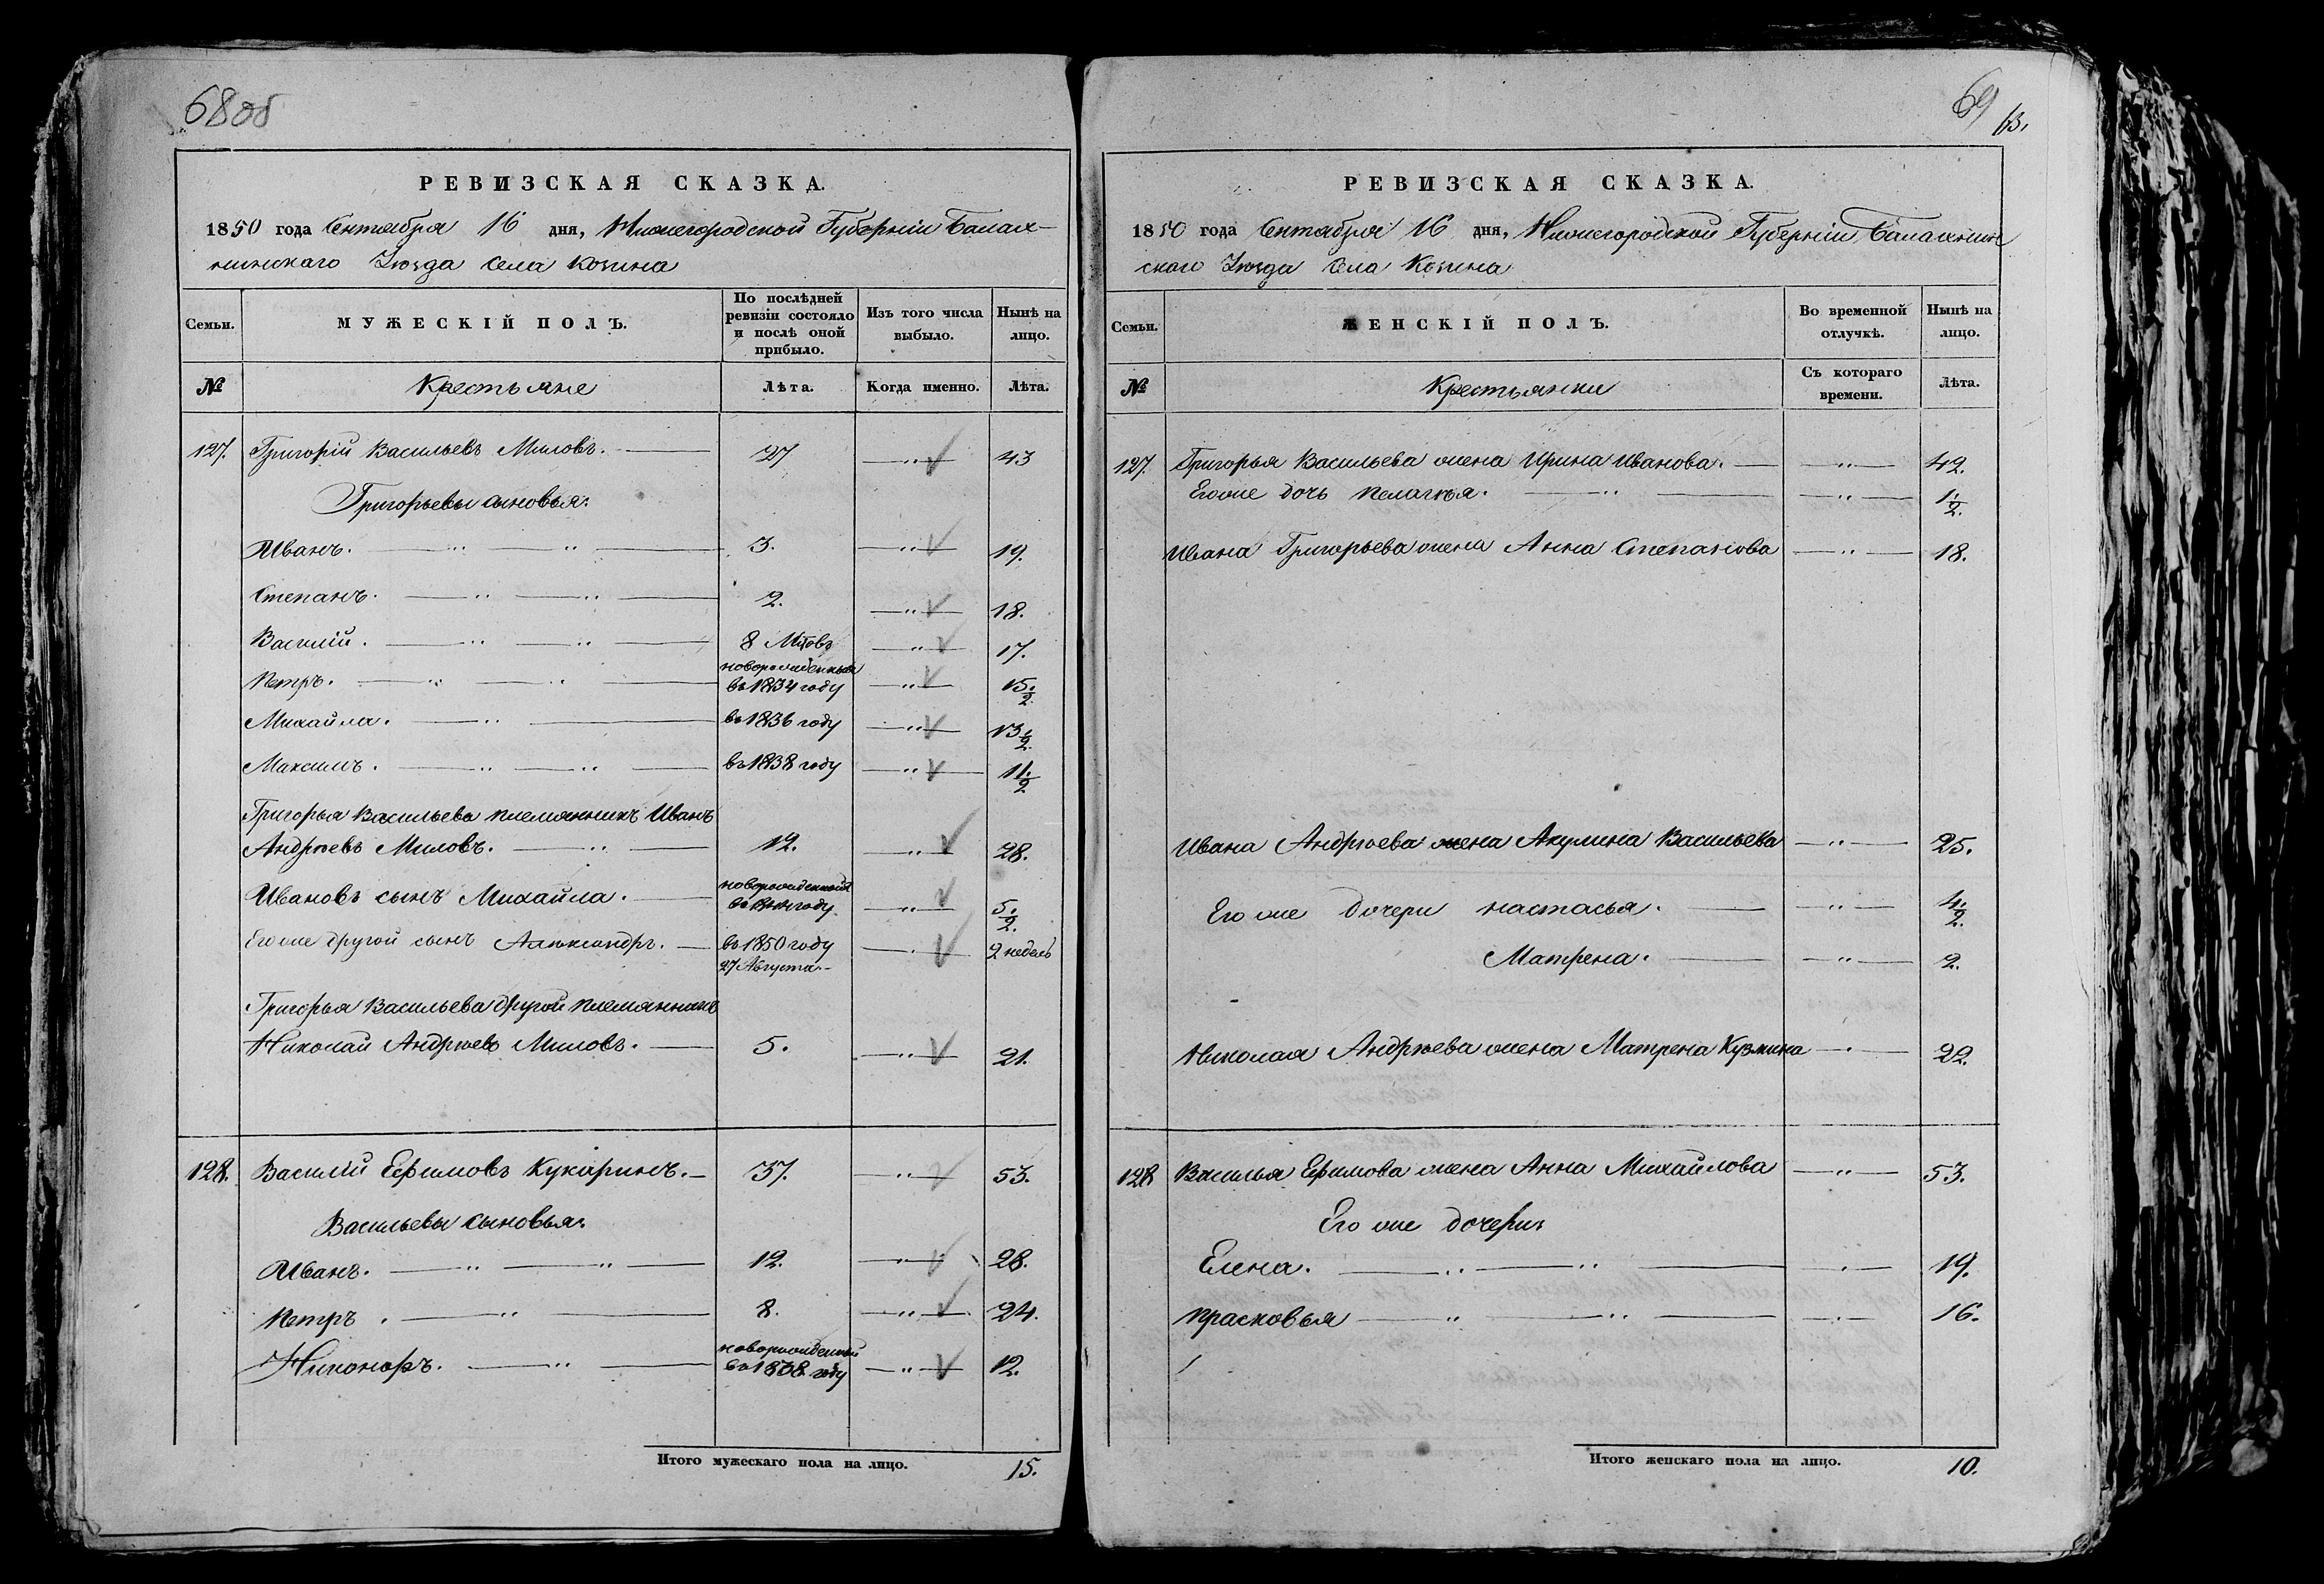 68об
РЕВИЗСКАЯ СКАЗКА.
1850 года Сентября 16 дня, Нижегородской Губерніи Балах-
нинскаго Уѣзда села Козина
Семьи. МУЖЕСКІЙ ПОЛЪ. По послѣдней ревизіи состояло и послѣ оной прибыло. Изъ того числа выбыло. Нынѣ на лицо.
№ Крестьяне Лѣта. Когда именно. Лѣта.
127. Григорій Васильевъ Миловъ. — 27 — " — 43
Григорьевы сыновья:
Иванъ. — " — " — 3. — " — 19.
Степанъ. — " — " — 2. — " — 18.
Василій. — " — " — 8 Мцовъ — " — 17.
новорожденные
Петръ. — " — " — въ 1834 году — " — 15 1/2
Михайла. — " — въ 1836 году — " — 13 1/2
Максимъ. — " — " — въ 1838 году — " — 11 1/2
Григорья Васильева племянникъ Иванъ
Андреевъ Миловъ. — " — 12. — " — 28.
новорожденной
Ивановъ сынъ Михайла. — году — " — 5 1/2
Его же другой сынъ Александръ. — въ 1850 году — " — 2 недель
27 Августа. —
Григорья Васильева другой племянникъ
Николай Андреевъ Миловъ. — 5. — " — 21.
128. Василій Ефимовъ Кукаринъ. — 37. — " — 53.
Васильевы сыновья:
Иванъ. — " — " — 12. — " — 28.
Петръ. — " — 8. — " — 24.
новорожденный
Никоноръ. — " — въ 1838 году — " — 12.
Итого мужескаго пола на лицо. 15.
69
63.
РЕВИЗСКАЯ СКАЗКА.
1850 года Сентября 16 дня, Нижегородской Губерніи Балахнин
скаго Уѣзда села Козина
Семьи. ЖЕНСКІЙ ПОЛЪ. Во временной отлучкѣ. Нынѣ на лицо.
№ Крестьянки Съ котораго времени. Лѣта.
127. Григорья Васильева жена Ирина Иванова. — " — 42.
Его же дочь Пелагѣя. — " — " — 1/2.
Ивана Григорьева жена Анна Степанова — " — 18.
Ивана Андреева жена Акулина Васильева — " — 25.
Его же дочери Настасья. — " — 4 1/2.
Матрена. — " — 2.
Николая Андреева жена Матрена Кузмина — " — 22.
128 Василья Ефимова жена Анна Михайлова — " — 53.
Его же дочери
Елена. — " — " — " — 19.
Прасковья — " — " — " — 16.
Итого женскаго пола на лицо. 10.